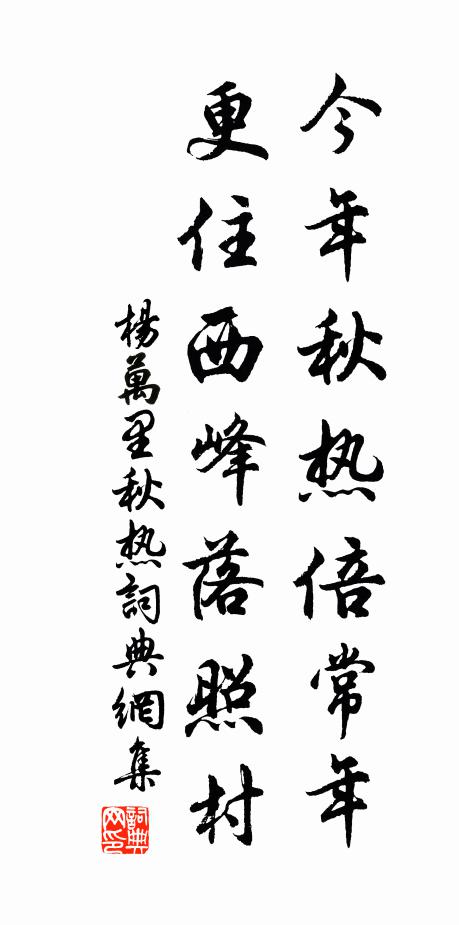 今年秋热倍常年
更住西峰落照村
楊萬里秋热詞典網集
詞典网印